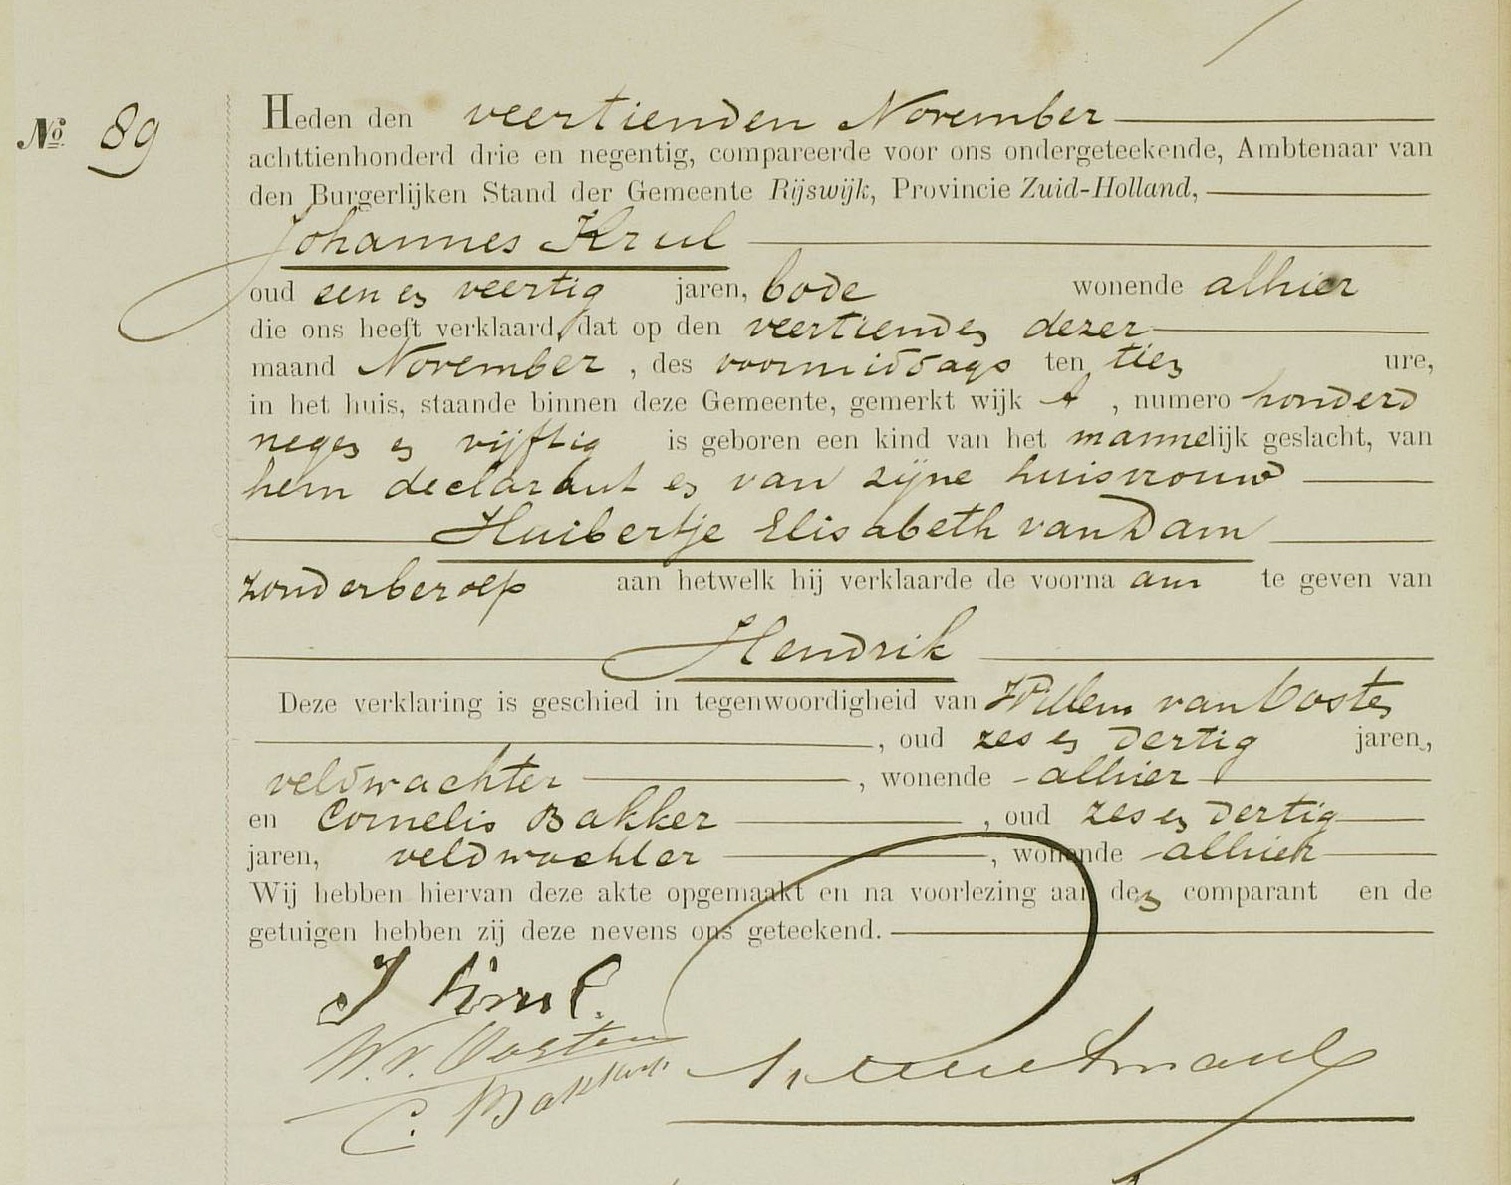 No. 89
Heden den veertienden November
achttienhonderd drie en negentig, compareerde voor ons ondergeteekende, Ambtenaar van
den Burgerlijken Stand der Gemeente Rijswijk, Provincie Zuid-Holland,
Johannes Krul
oud een en veertig jaren, bode wonende alhier
die ons heeft verklaard, dat op den veertienden dezer
maand November, des voormiddags ten tien ure,
in het huis, staande binnen deze Gemeente, gemerkt wijk A, numero honderd
negen en vijftig is geboren een kind van het mannelijk geslacht, van
hem declarant en van zijne huisvrouw
Huibertje Elisabeth van Dam
zonder beroep aan hetwelk hij verklaarde de voornaam te geven van
Hendrik
Deze verklaring is geschied in tegenwoordigheid van Willem van Oosten
, oud zes en dertig jaren,
veldwachter, wonende alhier
en Cornelis Bakker, oud zes en dertig
jaren, veldwachter, wonende alhier
Wij hebben hiervan deze akte opgemaakt en na voorlezing aan den comparant en de
getuigen hebben zij deze nevens ons geteekend.
J Krul.
W. v. Oosten
C. Bakker